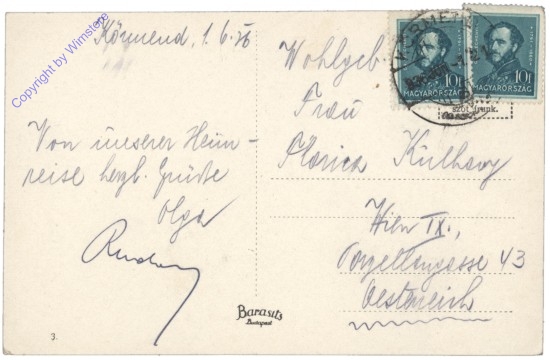 Copyright by Wimstore
Körmend, 1.6.36
Von unserer Heim-
reise herzl. Grüße
Olga
Wohlgeb
Frau
Florica Kulhavy
Wien IX.,
Porzellangasse 43
Oesterreich
10f
MAGYARORSZÁG
10f
MAGYARORSZÁG
Barasits
Budapest
3.